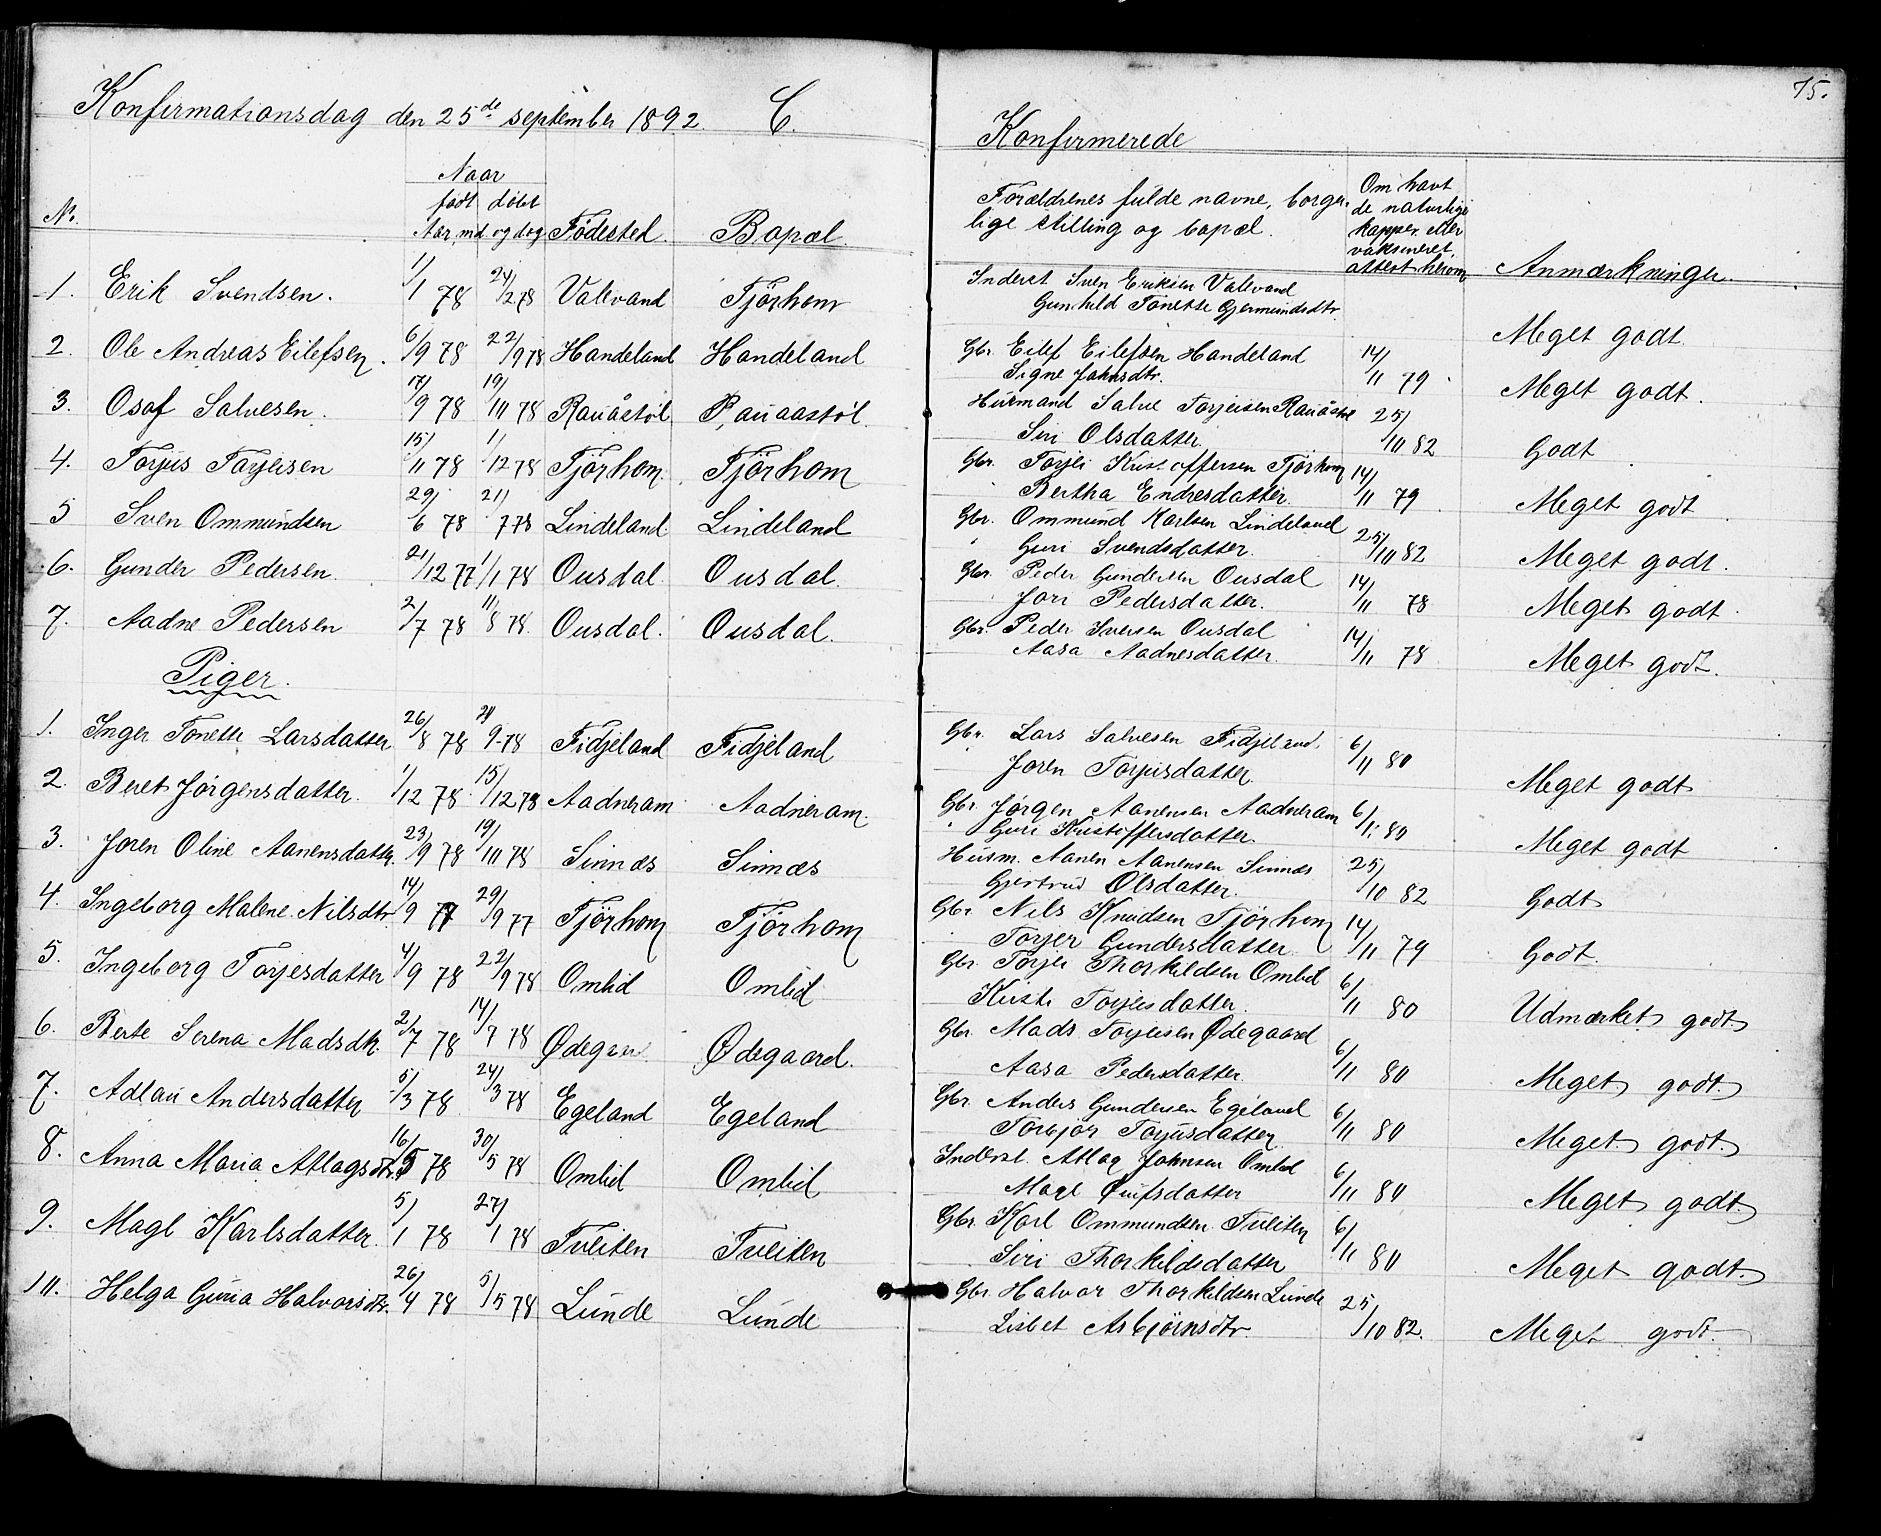 Konfirmationsdag den 25de september 1892. C.
No.
Naar
født døbt
Aar, md. og dag
Fødested.
Bopæl.
1. Erik Svendsen. 1/1 78 24/2 78 Valevand Tjörhom
2. Ole Andreas Eilefsen. 6/9 78 22/9 78 Handeland Handeland
3. Osof Salvesen. 17/9 78 19/10 78 Rauåstøl Rauaastøl.
4. Torjus Torjeisen 15/11 78 1/12 78 Tjörhom. Tjörhom
5 Sven Ommundsen 29/6 78 21/7 78 Lindeland Lindeland
6. Gunder Pedersen. 21/12 77 1/1 78 Ousdal Ousdal.
7. Aadne Pedersen 2/7 78 11/8 78. Ousdal. Ousdal.
Piger.
1. Inger Tonette Larsdatter 26/8 78 21/9 78 Fidjeland Fidjeland
2. Beret Jørgensdatter. 1/12 78 15/12 78 Aadneram Aadneram.
3. Joren Oline Aanensdatter. 23/9 78 19/10 78 Sinnæs Sinnæs
4. Ingeborg Malene Nilsdtr. 14/9 77 29/9 77 Tjörhom Tjörhom
5. Ingeborg Torjesdatter 4/9 78 22/9 78 Omlid Omlid
6. Berte Serena Madsdtr. 2/7 78 14/7 78 Ødegaard Ødegaard.
7. Adlau Andersdatter 5/3 78 24/3 78 Egeland Egeland
8. Anna Maria Atlagsdtr. 16/5 78 30/5 78 Omlid Omlid
9. Magl Karlsdatter. 5/1 78 27/1 78 Tveiten Tveiten
10. Helga Guria Halvorsdtr. 26/4 78 5/5 78 Lunde Lunde
75.
Konfirmerede
Forældrenes fulde navne, borger-
lige stilling og bopæl.
Om havt
de naturlige
kopper eller
vaksineret,
attest herom
Anmærkninger.
Inderst Sven Eriksen Valevand
Gunhild Tonette Gjermundsdtr. Meget godt.
Gbr. Eilef Eilefsen Handeland 14/11 79
Signe Johnsdtr. Meget godt.
Husmand Salve Torjeisen Rauåstøl 25/10 82
Siri Olsdatter. Godt
Gbr. Torjei Kristoffersen Tjörhom 14/11 79
Bertha Endresdatter. Meget godt
Gbr. Ommund Karlsen Lindeland 25/10 82
Guri Svendsdatter. Meget godt.
Gbr. Peder Gundersen Ousdal 14/11 78
Jori Pedersdatter. Meget godt.
Gbr. Peder Iversen Ousdal 14/11 78
Aasa Aadnesdatter. Meget godt.
Gbr. Lars Salvesen Fidjeland. 6/11 80
Joren Torjusdatter. Meget godt
Gbr. Jørgen Aanensen Aadneram 6/11 80
Guri Kristoffersdatter. Meget godt
Husm. Aanen Aanensen Sinnæs 25/10 82
Gjertrud Olsdatter. Godt
Gbr. Nils Knudsen Tjörhom 14/11 79
Torjer Gundersdatter. Godt.
Gbr. Torjei Thorkildsen Omlid 6/11 80
Kirsti Torjeisdatter. Udmærket godt
Gbr. Mads Torjeisen Ødegaard 6/11 80
Aasa Pedersdatter. Meget godt.
Gbr. Anders Gundersen Egeland 6/11 80
Torbjør Torjusdatter. Meget godt.
Inderst. Atlag Johnsen Omlid 6/11 80
Magl datter Meget godt.
Gbr. Karl Ommundsen Tveiten 6/11 80
Siri Thorkildsdatter Meget godt.
Gbr. Halvor Thorkildsen Lunde 25/10 82.
Lisbet Asbjørnsdtr. Meget godt.